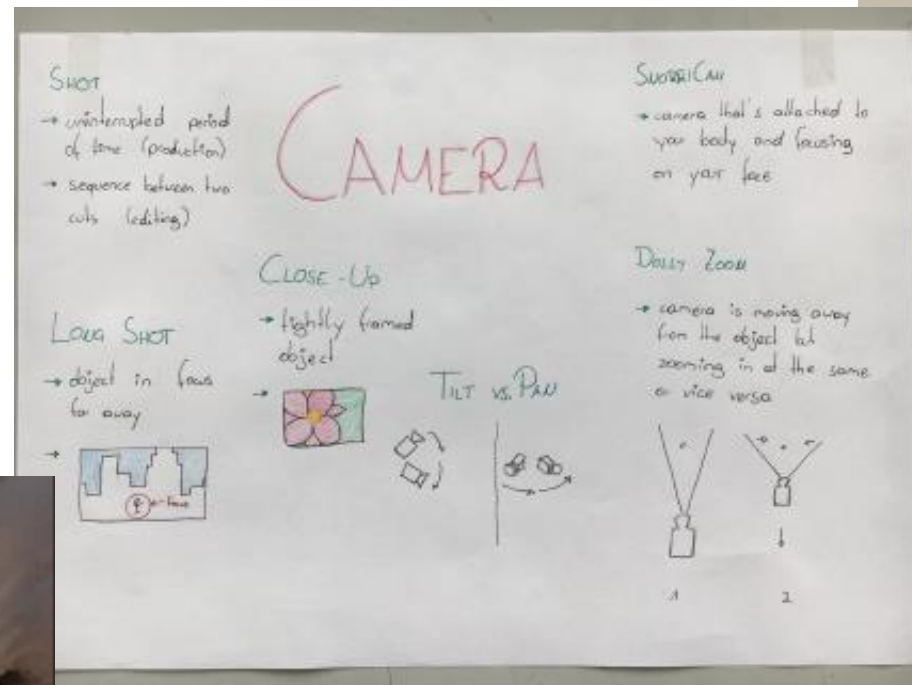 SHOT
→ uninterrupted period
of time (production)
→ sequence between two
cuts (editing)
CAMERA
SNORRICAM
→ camera that's attached to
your body and focusing
on your face
CLOSE-UP
→ tightly framed
object
→
LONG SHOT
→ object in focus
far away
→
focus
TILT VS. PAN
DOLLY ZOOM
→ camera is moving away
from the object but
zooming in at the same
or vice versa
1
2